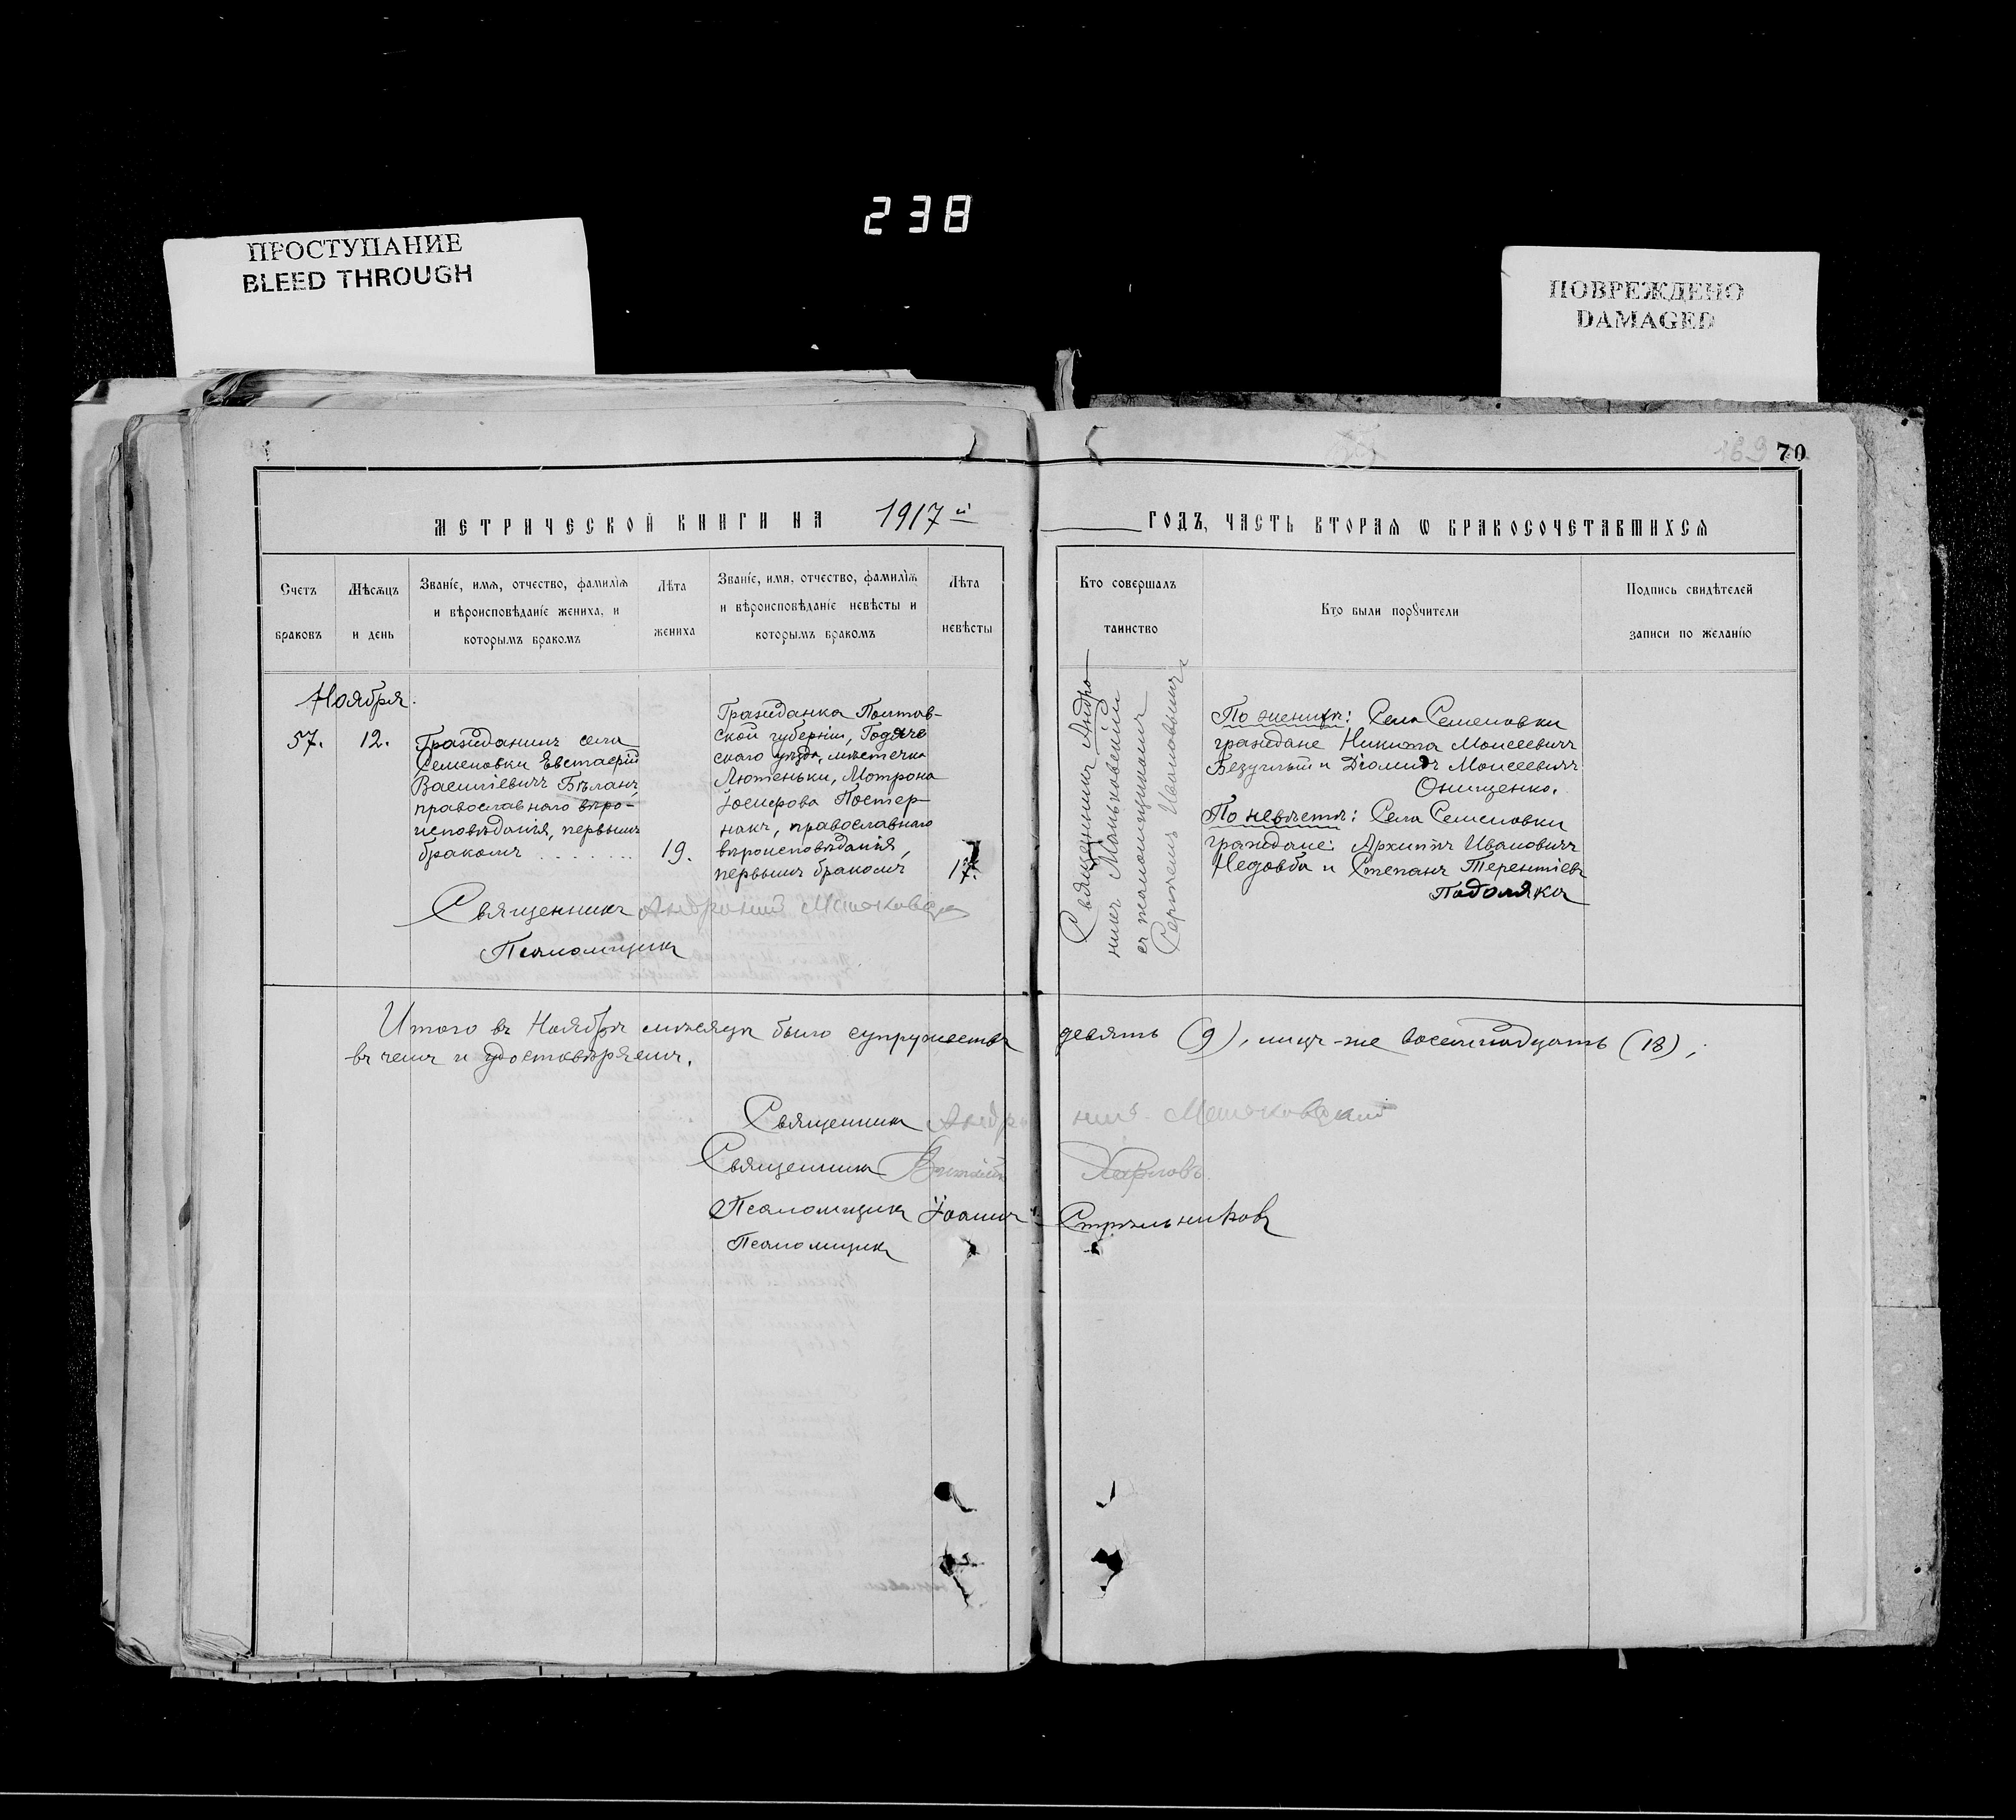 238
ПРОСТУПАНИЕ
BLEED THROUGH
ПОВРЕЖДЕНО
DAMAGED
169 70
МЕТРИЧЕСКОЙ КНИГИ НА 1917 й
ГОДЪ, ЧАСТЬ ВТОРАѦ Ѡ БРАКОСОЧЕТАВШИХСѦ
Счетъ
браковъ
Мѣсѧцъ
и день
Званіе, имѧ, отчество, фамиліѧ
и вѣроисповѣданіе жениха, и
которымъ бракомъ
Лѣта
жениха
Званіе, имя, отчество, фамиліѧ
и вѣроисповѣданіе невѣсты и
которымъ бракомъ
Лѣта
невѣсты
Кто совершалъ
таинство
Кто были порꙋчители
Подпись свидѣтелей
записи по желанію
Ноября.
57.
12.
Гражданинъ села
Семеновки Евстафій
Василіевичъ Бѣланъ,
православнаго вѣро-
исповѣданія, первымъ
бракомъ . . . . . . .
19.
Гражданка Полтав-
ской губерніи, Гадяч
скаго уѣзда, мѣстечка
Лютеньки, Мотрона
Іосифова Постер-
накъ, православнаго
вѣроисповѣданія,
первымъ бракомъ
17.
Священникъ Андро-
никъ Маньковскій
съ псаломщикомъ
Сергіемъ
По женихѣ: Села Семеновки
граждане Никита Моисеевичъ
Безуглый и Діомидъ Моисеевичъ
Онищенко.
По невѣстѣ: Села Семеновки
граждане: Архипъ Ивановичъ
Недовба и Стефанъ Терентіевъ
Подоляка
Священникъ
Псаломщикъ
Итого въ Ноябрѣ мѣсяцѣ было супружествъ девять (9), лицъ-же восемнадцать (18),
въ чемъ и удостовѣряемъ.
Священникъ
Священникъ Виталій Карповъ
Псаломщикъ Іоаннъ Стрѣльниковъ
Псаломщикъ